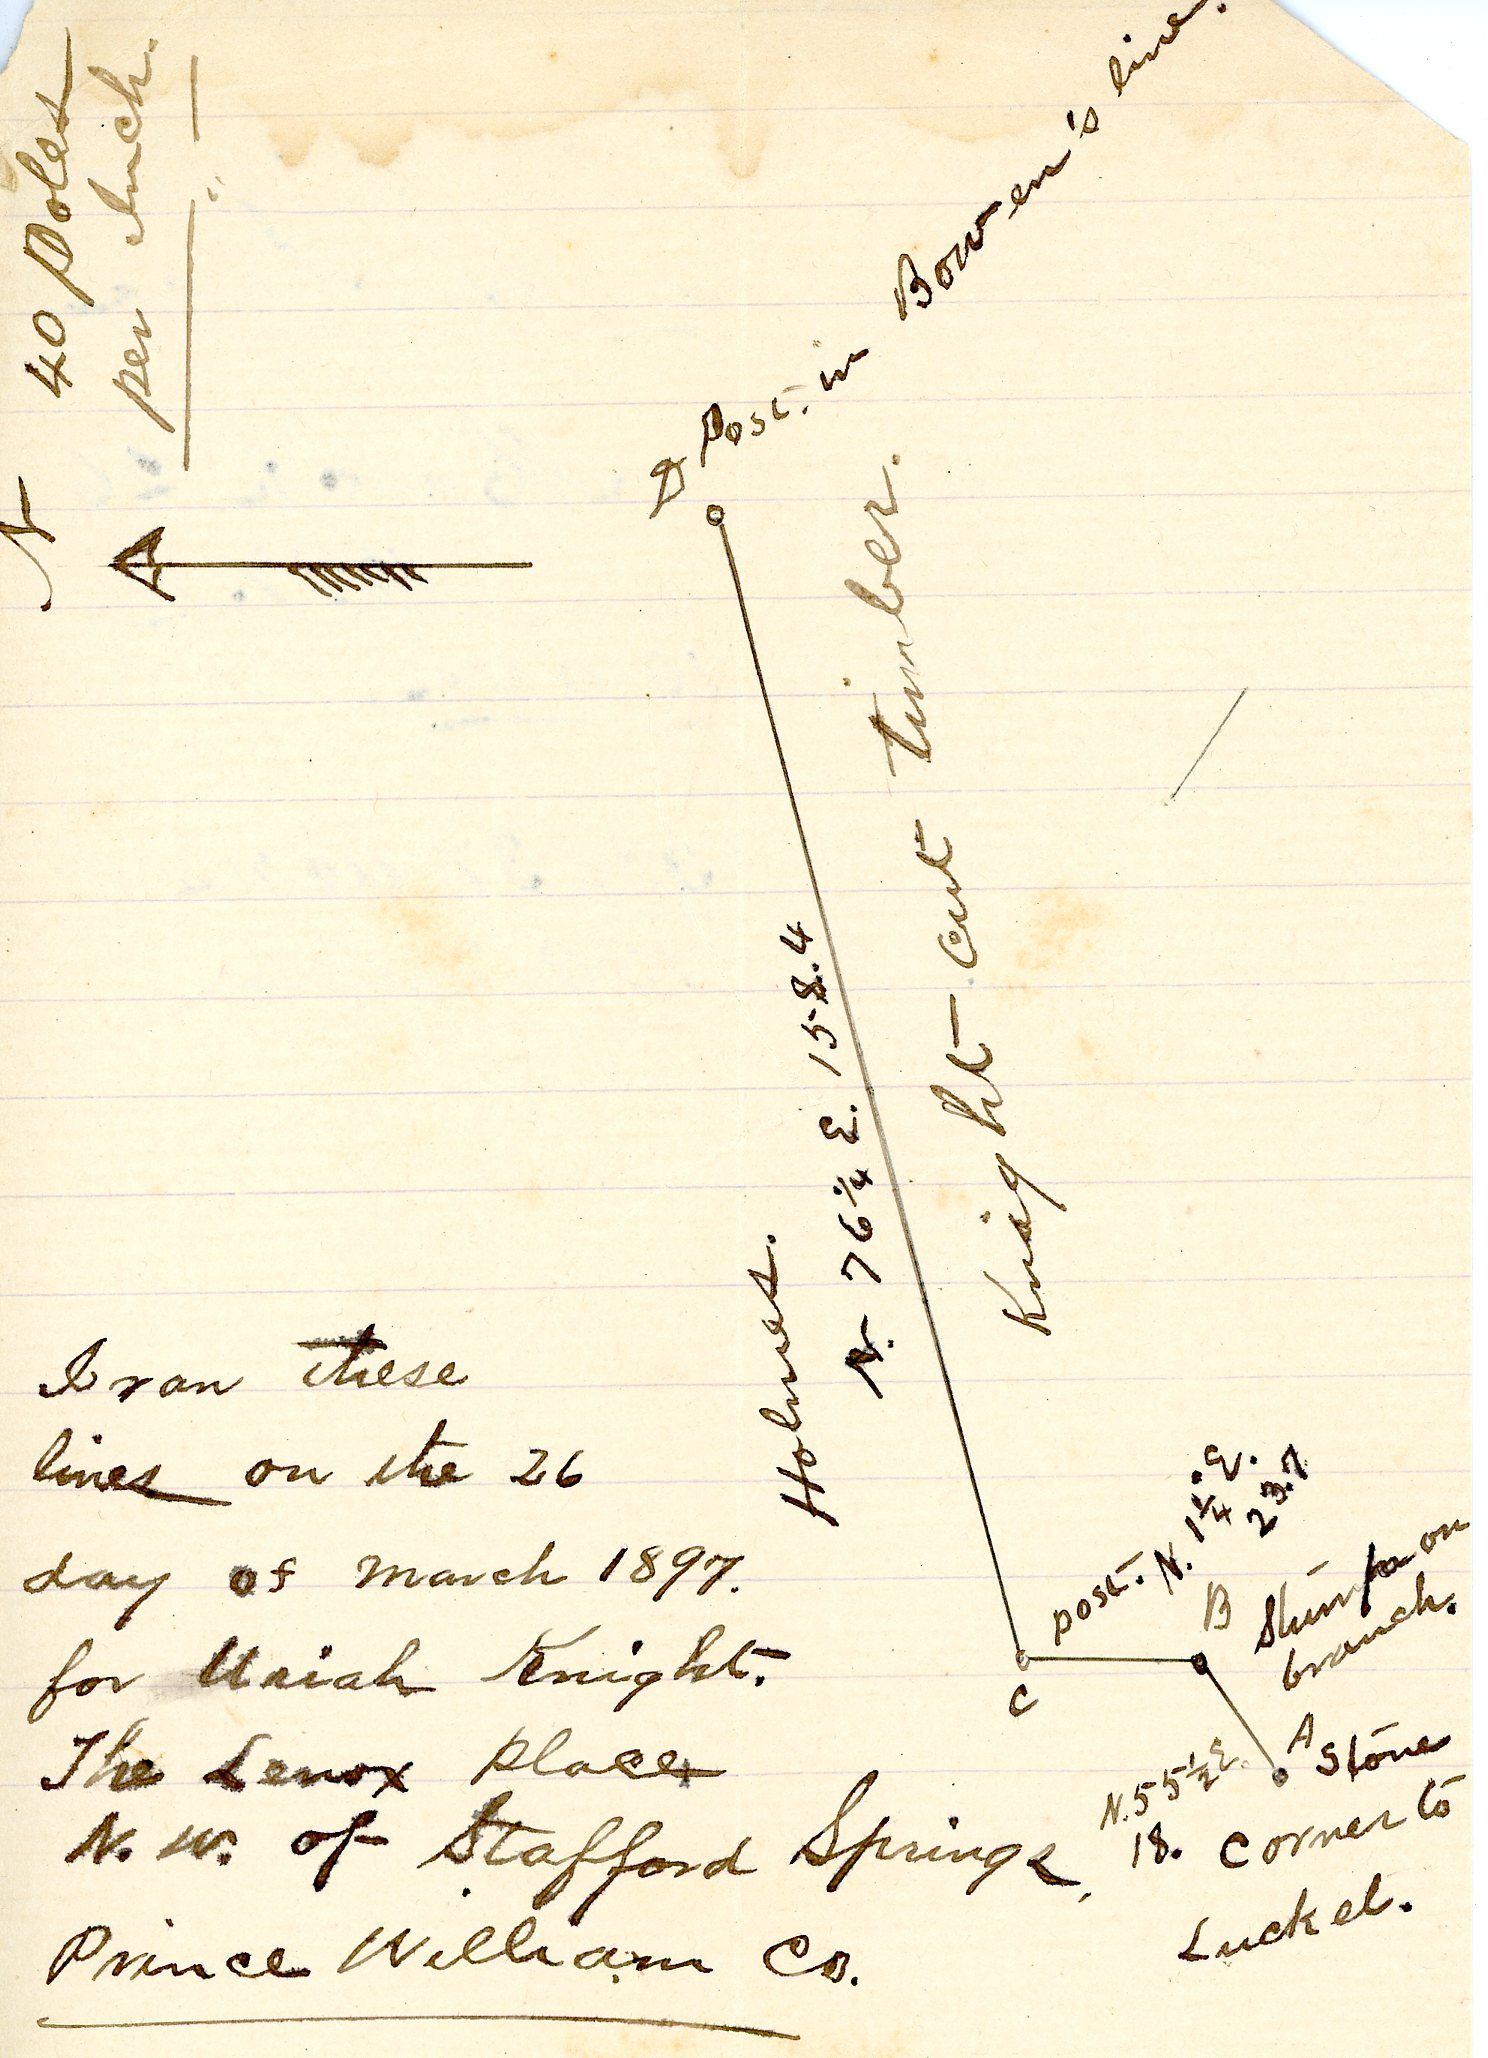 40 Poles
per Inch.
N
D Post. in Bowen's line.
Knight cut timber.
Holmes.
N. 76 1/4 E. 158.4
post. N. 1 1/4° E.
23.7
C
B
Stump on
branch.
A
Stone
corner to
Luckel.
N. 55 1/2 E.
18.
I ran these
lines on the 26
day of March 1897.
for Uriah Knight.
The Lenox Place
N. W. of Stafford Springs,
Prince William Co.